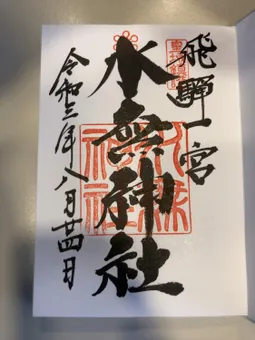 飛騨一宮
水無神社
令和三年八月廿四日
水無神社